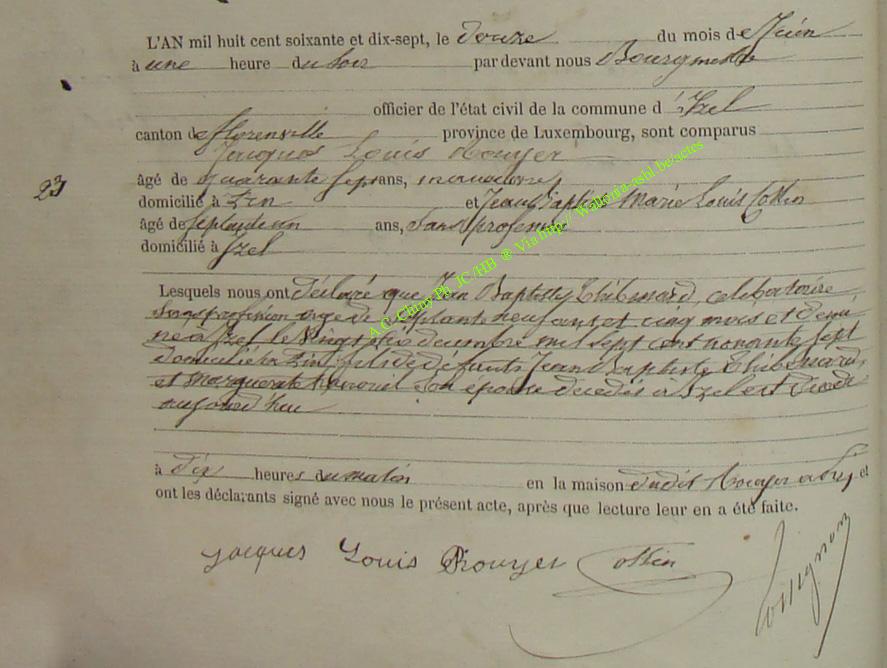 L'AN mil huit cent soixante et dix-sept, le douze du mois de Juin
à une heure du soir pardevant nous Bourgmestre
officier de l'état civil de la commune d'Izel
canton de florenville province de Luxembourg, sont comparus
Jacques Louis Rouyer
23
âgé de quarante sept ans, manœuvre,
domicilié à et Jean Baptiste Marie Louis Collin
âgé de septante un ans, Sans profession
domicilié à Izel
Lesquels nous ont déclaré que Jean Baptiste célibataire
sans profession age de septante neuf ans et cinq mois et demi
né à Izel le vingt décembre mil sept cent nonante sept
domicilié à fils de défunts Jean Baptiste
et Marguerite son épouse décédés à Izel est décédé
aujourd'hui
à dix heures du matin en la maison dudit Rouyer et
ont les déclarants signé avec nous le présent acte, après que lecture leur en a été faite.
Jacques Louis Rouyer Collin
A.C. Chiny Ph. JC/HB @ Via http:// Wallonia-asbl.be/actes